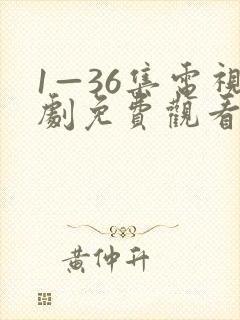 1—36集電視
劇免費觀看
黃仲升